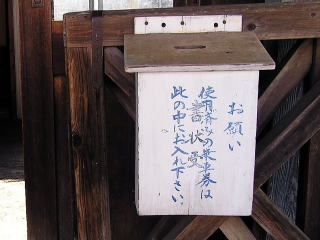 お願い
使用済みの乗車券は
此の中にお入れ下さい
書状受